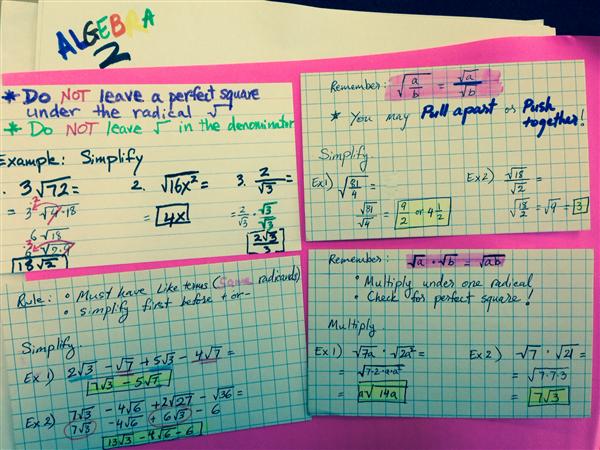 ALGEBRA
2
* Do NOT leave a perfect square
under the radical √
* Do NOT leave √ in the denominator
Example: Simplify
1. 3√72 =
= 3√4·18
6√18
6√9·2
18√2
2. √16x² =
= 4x
3. 2/√3 =
= 2/√3 · √3/√3
2√3/3
Remember: √(a/b) = √a/√b
* You may Pull apart or Push
together!
Simplify
Ex 1) √(81/4) =
√81/√4 = 9/2 or 4 1/2
Ex 2) √18/√2 =
√(18/2) = √9 = 3
Rule: • Must have Like terms (Same radicands)
• simplify first before + or -
Simplify.
Ex. 1) 2√3 - √7 + 5√3 - 4√7 =
7√3 - 5√7
Ex 2) 7√3 - 4√6 + 2√27 - √36 =
7√3 - 4√6 + 6√3 - 6
13√3 - 4√6 - 6
Remember: √a · √b = √ab
• Multiply under one radical
• Check for perfect square!
Multiply.
Ex 1) √7a · √2a² =
= √7·2·a·a²
= a√14a
Ex 2) √7 · √21 =
= √7·7·3
= 7√3